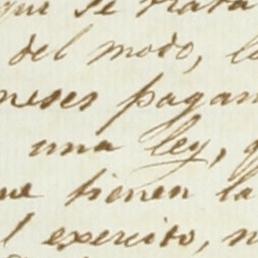 que se trata
del modo, lo
neses pagan
una ley, q
ue tienen la
l exercito, n